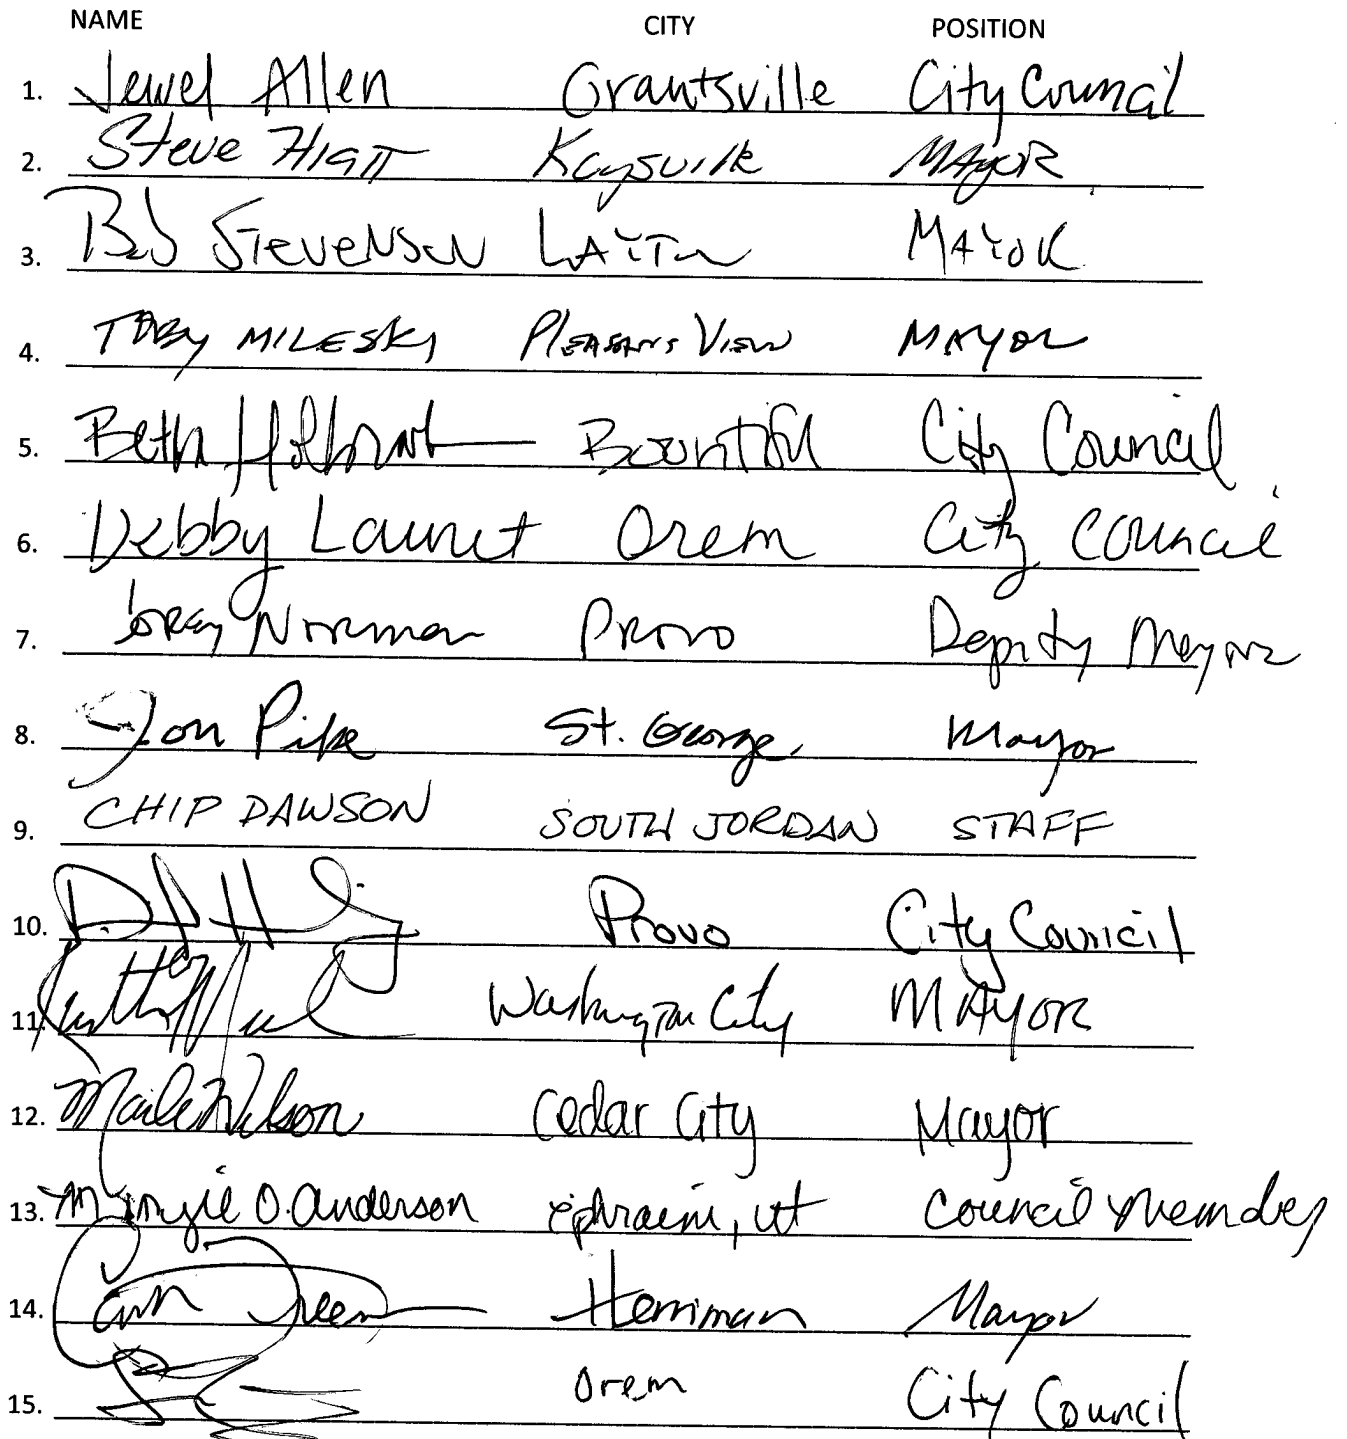 NAME CITY POSITION
1. Jewel Allen Grantsville City Council
2. Steve HIATT Kaysville MAYOR
3. Bob STEVENSON LAYTON MAYOR
4. TOBY MILESKY PLEASANT VIEW MAYOR
5. Beth Holbrook Bountiful City Council
6. Debby Lauret Orem City Council
7. Corey Norman Provo Deputy Mayor
8. Jon Pike St. George Mayor
9. CHIP DAWSON SOUTH JORDAN STAFF
10. Provo City Council
11. Washington City MAYOR
12. Maile Wilson Cedar City Mayor
13. Margie O. Anderson Ephraim, ut Council Member
14. Herriman Mayor
15. Orem City Council